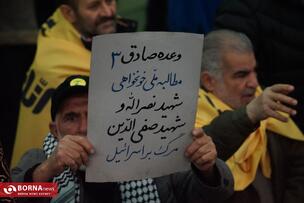 وعده صادق ۳
مطالبه ملی خونخواهی
شهید نصرالله و
شهید صفی الدین
مرگ بر اسرائیل
BORNA
NEWS.COM